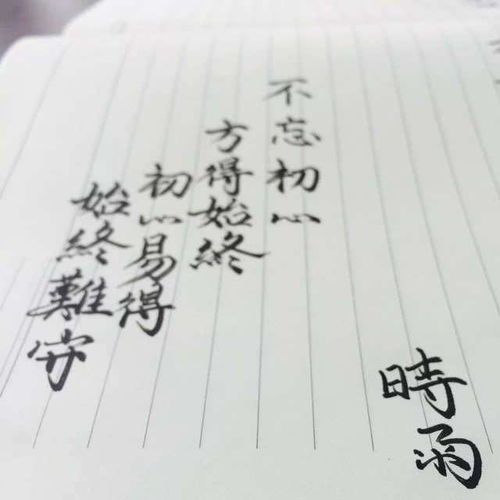 不忘初心
方得始終
初心易得
始終難守
時雨